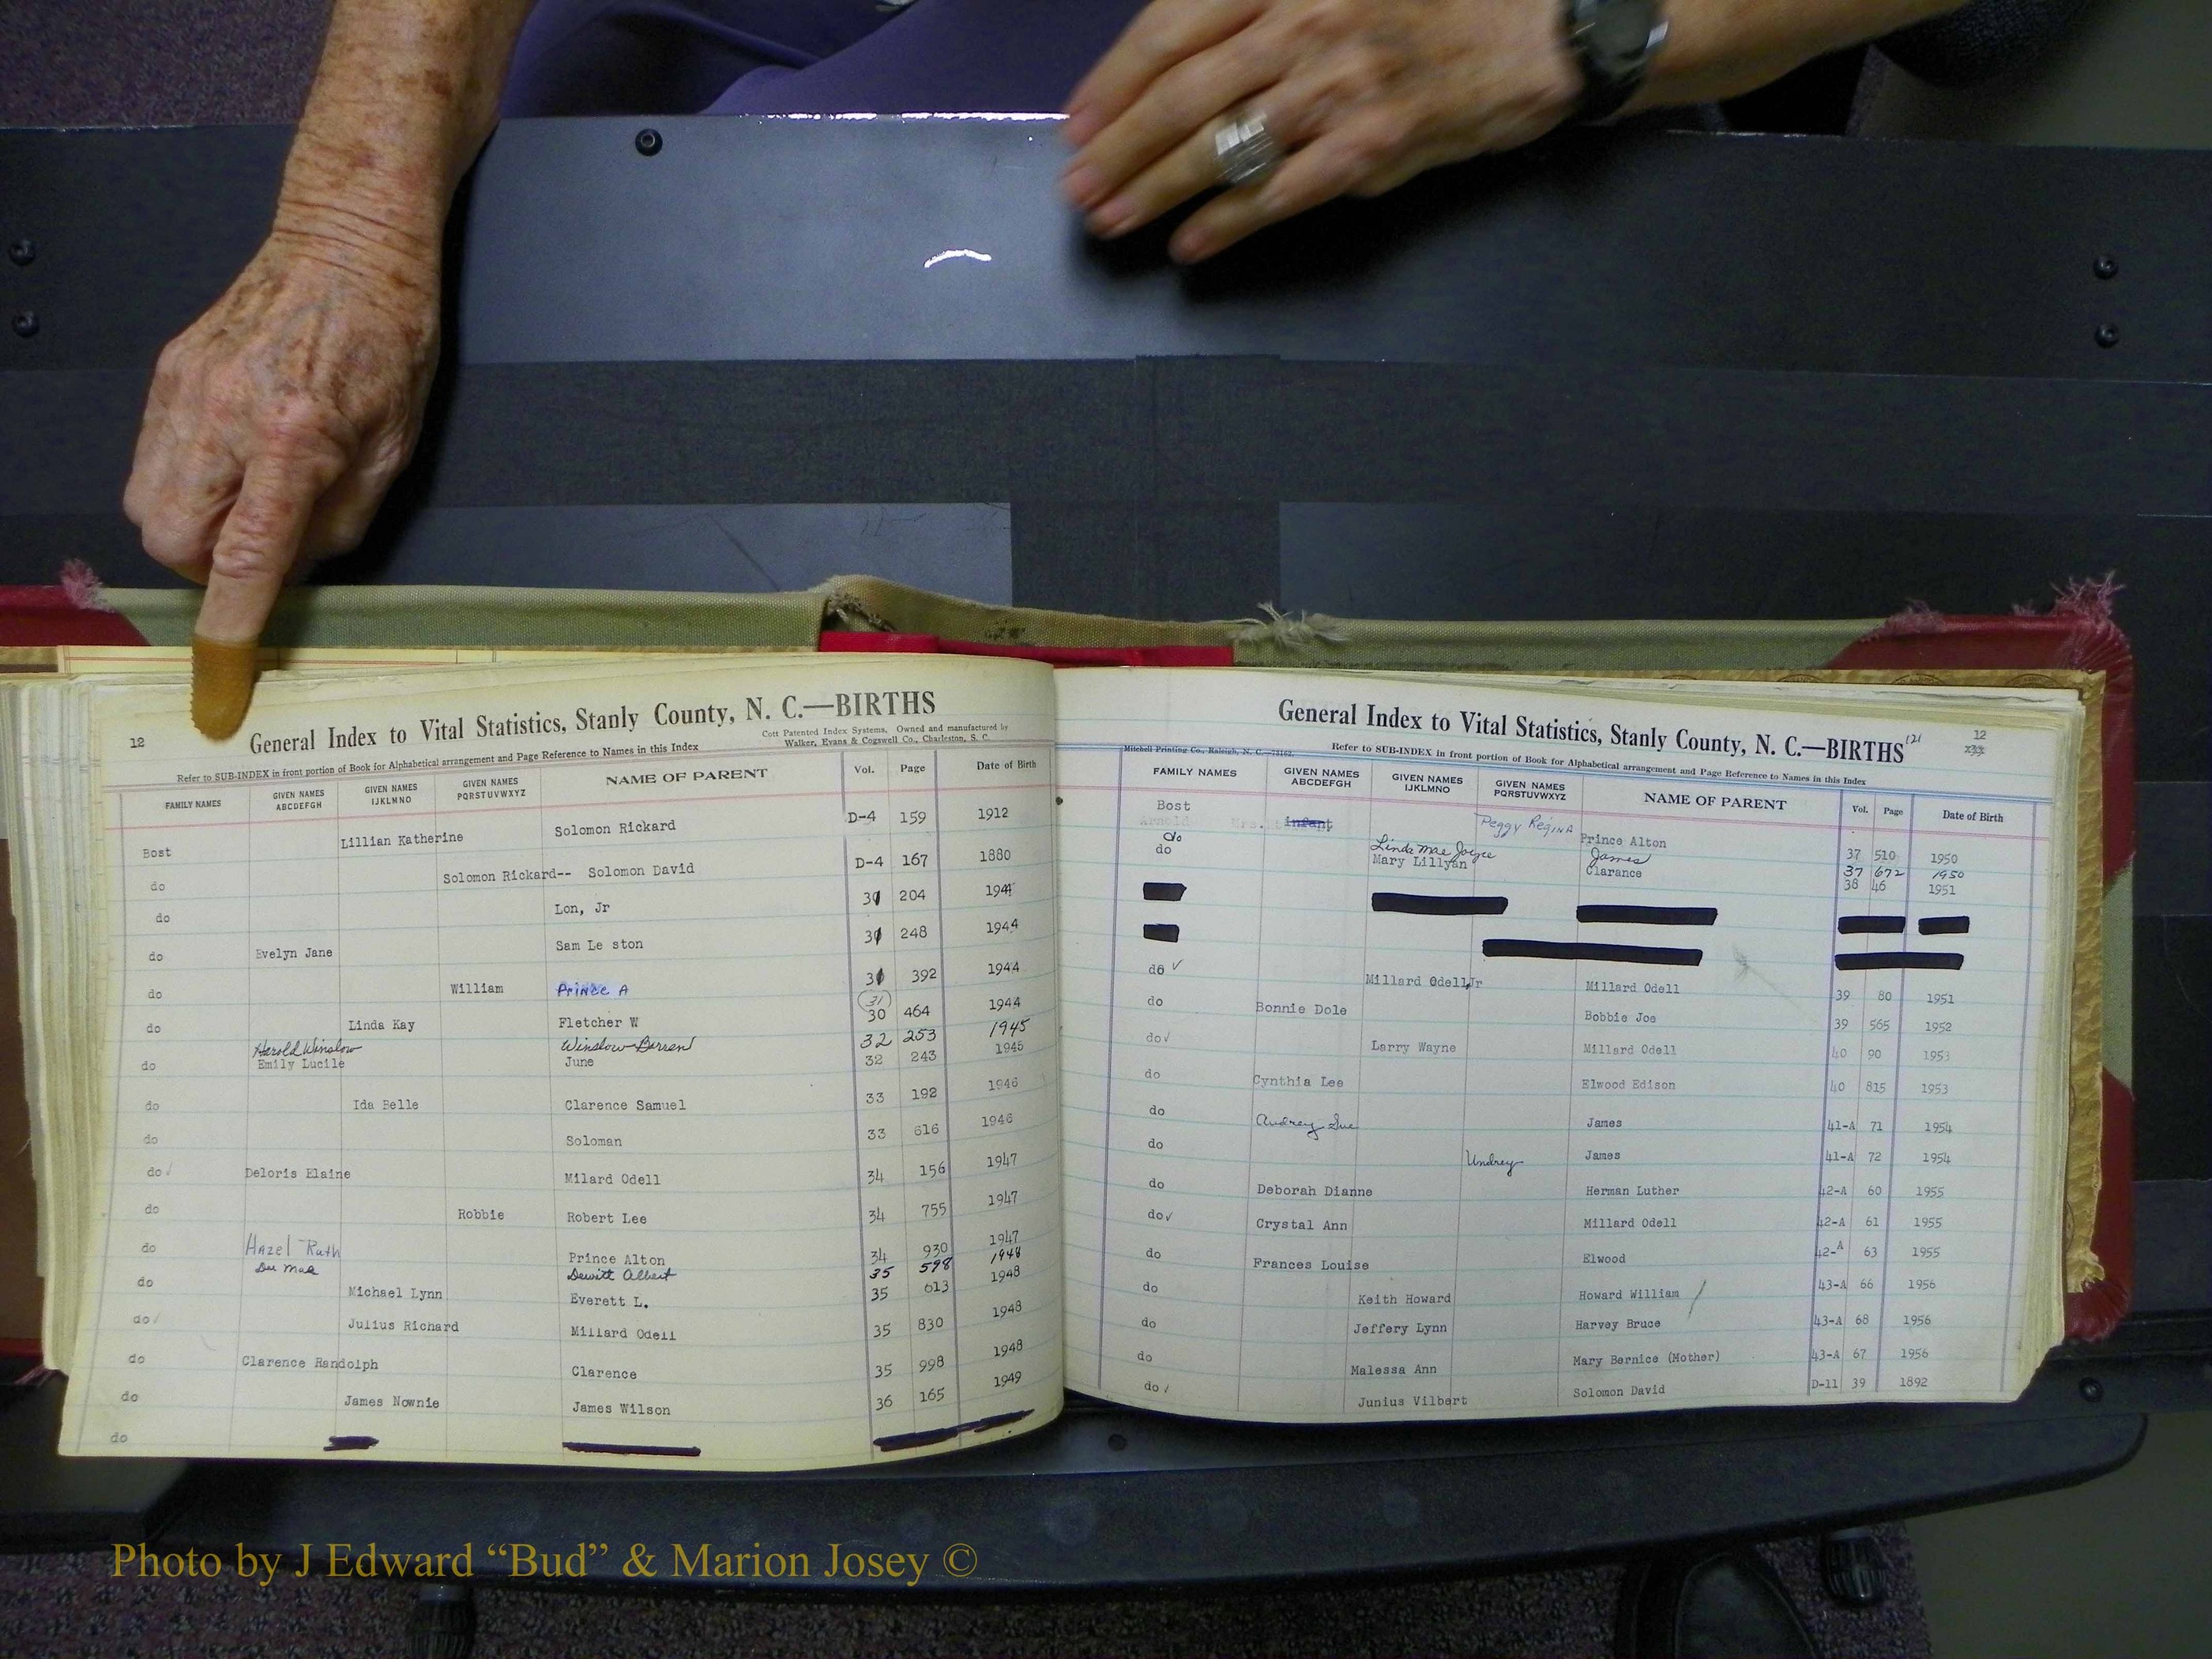 12
General Index to Vital Statistics, Stanly County, N. C.—BIRTHS
Cott Patented Index Systems, Owned and manufactured by
Walker, Evans & Cogswell Co., Charleston, S. C.
Refer to SUB-INDEX in front portion of Book for Alphabetical arrangement and Page Reference to Names in this Index
FAMILY NAMES GIVEN NAMES ABCDEFGH GIVEN NAMES IJKLMNO GIVEN NAMES PQRSTUVWXYZ NAME OF PARENT Vol. Page Date of Birth
Bost Lillian Katherine Solomon Rickard D-4 159 1912
do Solomon Rickard-- Solomon David D-4 167 1880
do Lon, Jr 204 1944
do Evelyn Jane Sam Le ston 248 1944
do William Prince A 392 1944
do Linda Kay Fletcher W (31) 30 464 1944
Harold Winslow Winslow Barren 32 253 1945
do Emily Lucile June 32 243 1945
do Ida Belle Clarence Samuel 33 192 1946
do Soloman 33 616 1946
do ✓ Deloris Elaine Milard Odell 34 156 1947
do Robbie Robert Lee 34 755 1947
do Hazel Ruth Prince Alton 34 930 1947
Mae Dewitt Albert 35 598 1948
do Michael Lynn Everett L. 35 613 1948
do ✓ Julius Richard Millard Odell 35 830 1948
do Clarence Randolph Clarence 35 998 1948
do James Nownie James Wilson 36 165 1949
do
General Index to Vital Statistics, Stanly County, N. C.—BIRTHS
121
12
Mitchell Printing Co., Raleigh, N. C.—73162.
Refer to SUB-INDEX in front portion of Book for Alphabetical arrangement and Page Reference to Names in this Index
FAMILY NAMES GIVEN NAMES ABCDEFGH GIVEN NAMES IJKLMNO GIVEN NAMES PQRSTUVWXYZ NAME OF PARENT Vol. Page Date of Birth
Bost infant Peggy Regina Prince Alton 37 510 1950
do Linda Mae Joyce James 37 672 1950
do Mary Lillyan Clarance 38 46 1951
do ✓ Millard Odell, Jr Millard Odell 39 80 1951
do Bonnie Dole Bobbie Joe 39 565 1952
do ✓ Larry Wayne Millard Odell 40 90 1953
do Cynthia Lee Elwood Edison 40 815 1953
do Audrey Sue James 41-A 71 1954
do Undrey James 41-A 72 1954
do Deborah Dianne Herman Luther 42-A 60 1955
do ✓ Crystal Ann Millard Odell 42-A 61 1955
do Frances Louise Elwood 42-A 63 1955
do Keith Howard Howard William 43-A 66 1956
do Jeffery Lynn Harvey Bruce 43-A 68 1956
do Malessa Ann Mary Bernice (Mother) 43-A 67 1956
do ✓ Junius Vilbert Solomon David D-11 39 1892
Photo by J Edward “Bud” & Marion Josey ©